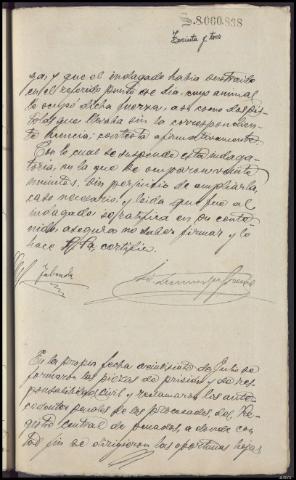 S.8.060.838
Treinta y tres
ga, y que el indagado habia sustraido
en el referido punto ese dia, cuyo animal
le ocupó dicha fuerza, así como la pis
tola que llevaba sin la correspondien
te licencia; contesta afirmativamente.
Con lo cual se suspende esta indaga
toria, en la que se emplearon veinte
minutos, sin perjuicio de ampliarla
caso necesario; y leida que fué al
indagado se ratifica en su conte
nido, asegura no saber firmar y lo
hace S.Sª, certifico.
En la propia fecha veinticinco de Julio se
formaron las piezas de prision y de res
ponsabilidad civil y reclamaron los ante
cedentes penales de los procesados del Re
gistro central de penados, a donde con
tal fin se dirigieron las oportunas hojas